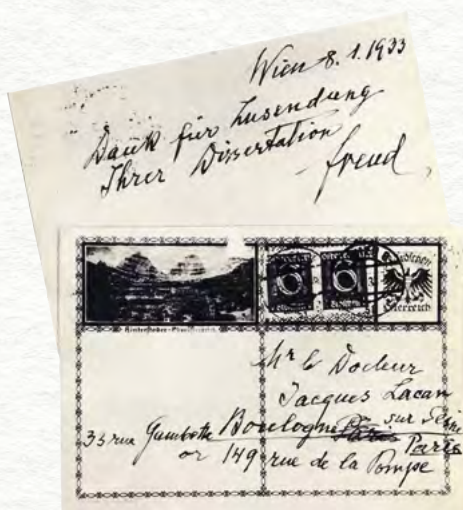 Wien 8. 1. 1933
Dank für Zusendung
Ihrer Dissertation
freud
Hinterstoder-
Österreich
Mr le Docteur
Jacques Lacan
33 rue Gambetta Boulogne sur Seine
Paris
or 149 rue de la Pompe